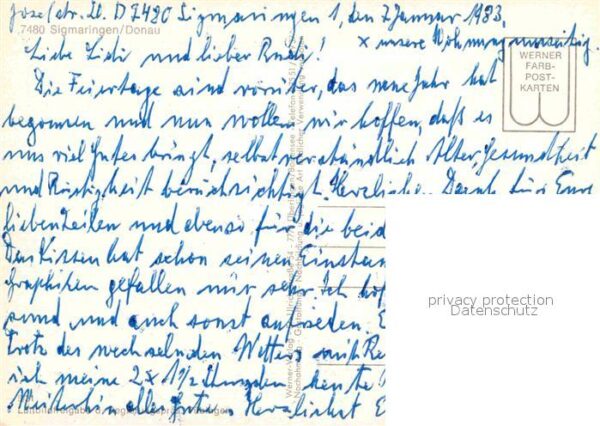 Josefstr. 11. D 7480 Sigmaringen 1, den 7. Januar 1983.
7480 Sigmaringen/Donau
x unsere Wohnung umseitig.
Liebe Liebi und lieber Rudi!
WERNER
FARB-
POST-
KARTEN
Die Feiertage sind vorüber, das neue Jahr hat
begonnen und nun wollen wir hoffen, daß es
uns viel Gutes bringt, selbstverständlich Alter, Gesundheit
und Rüstigkeit berücksichtigt. Herzlichen Dank für Eure
lieben Zeilen und ebenso für die beid
Das Kissen hat schon seinen Einstan
Graphiken gefallen mir sehr. Ich hof
sind und auch sonst zufrieden. E
Trotz des wechselnden Wetters mit Re
ich meine 2x 1½ Stunden heute
Weiterhin alles Guten. Herzlichst E
privacy protection
Datenschutz